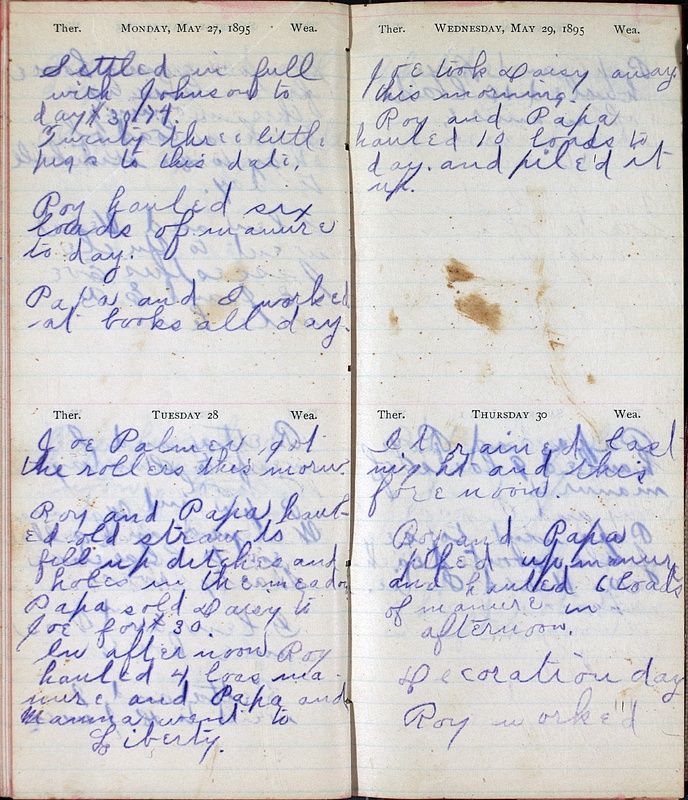 Ther. MONDAY, MAY 27, 1895 Wea.
Settled in full
with Johnson to
day $30.74.
Twenty three little
pigs to this date.
Roy hauled six
loads of manure
to day.
Papa and I worked
at books all day.
Ther. TUESDAY 28 Wea.
Joe Palmer got
the rollers this morn.
Roy and Papa haul-
ed old straw to
fill up ditches and
holes in the meadow
Papa sold Daisy to
Joe for $30.
In afternoon Roy
hauled 4 loas ma-
nure and Papa and
Mamma went to
Liberty.
Ther. WEDNESDAY, MAY 29, 1895 Wea.
Joe took Daisy away
this morning.
Roy and Papa
hauled 10 loads to
day and pile'd it
up.
Ther. THURSDAY 30 Wea.
It rained last
night and this
fore noon.
Roy and Papa
pitked up manure
and hauled 6 loads
of manure in
afternoon.
Decoration day
Roy worke'd